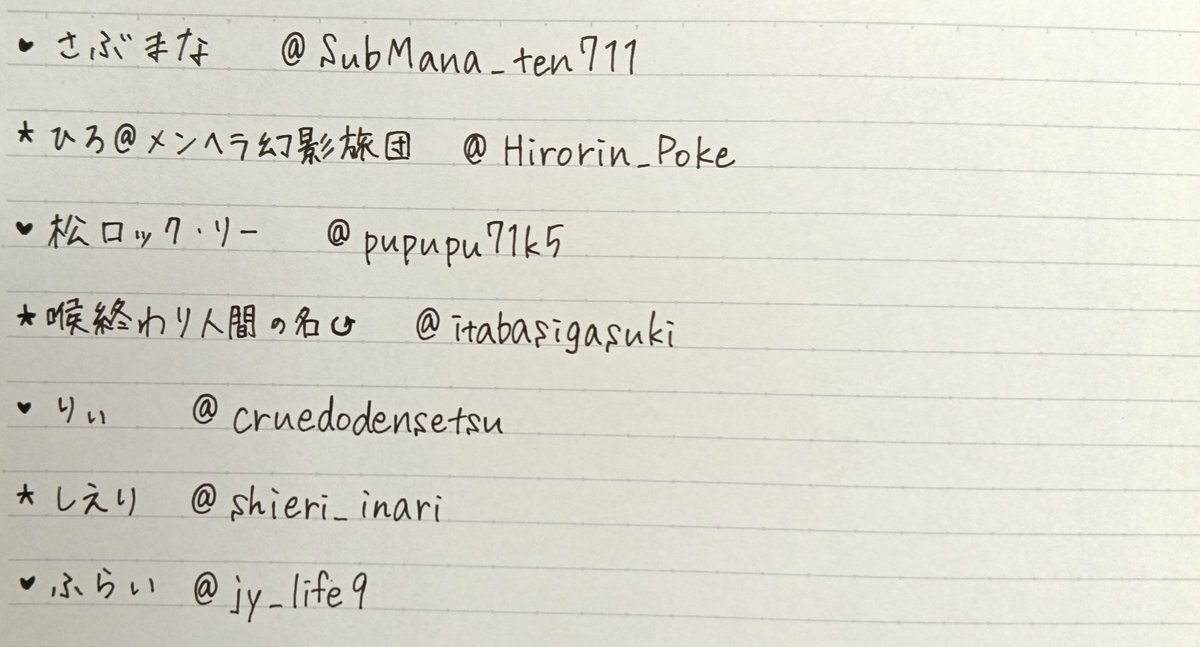 ♥ さぶまな @SubMana_ten711
★ ひろ@メンヘラ幻影旅団 @Hirorin_Poke
♥ 松ロック・リー @pupupu71k5
★ 喉終わり人間の名 @itabasigasuki
♥ りぃ @cruedodensetsu
★ しえり @shieri_inari
♥ ふらい @jy_life9